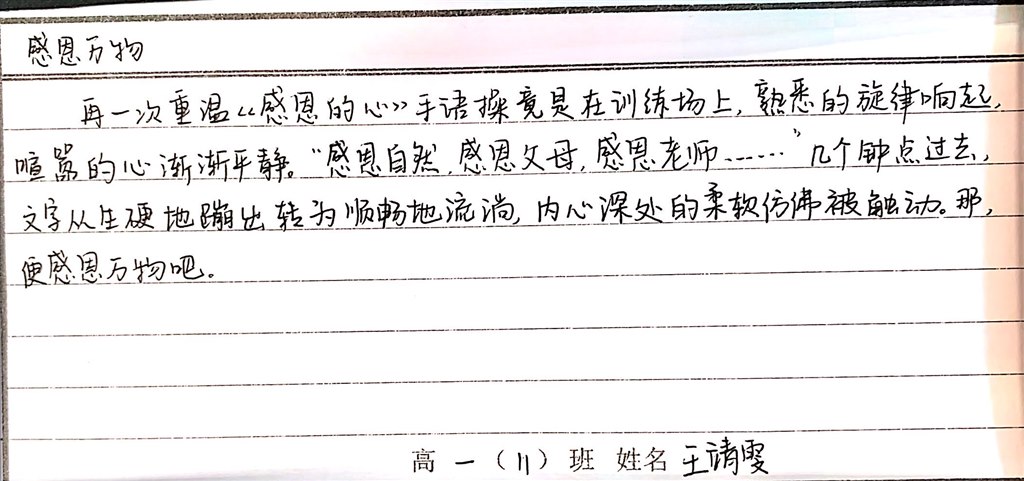 感恩万物
再一次重温《感恩的心》手语操竟是在训练场上,熟悉的旋律响起,
喧嚣的心渐渐平静。"感恩自然,感恩父母,感恩老师……"几个钟点过去,
文字从生硬地蹦出转为顺畅地流淌,内心深处的柔软仿佛被触动。那,
便感恩万物吧。
高一(11)班 姓名 王请雯